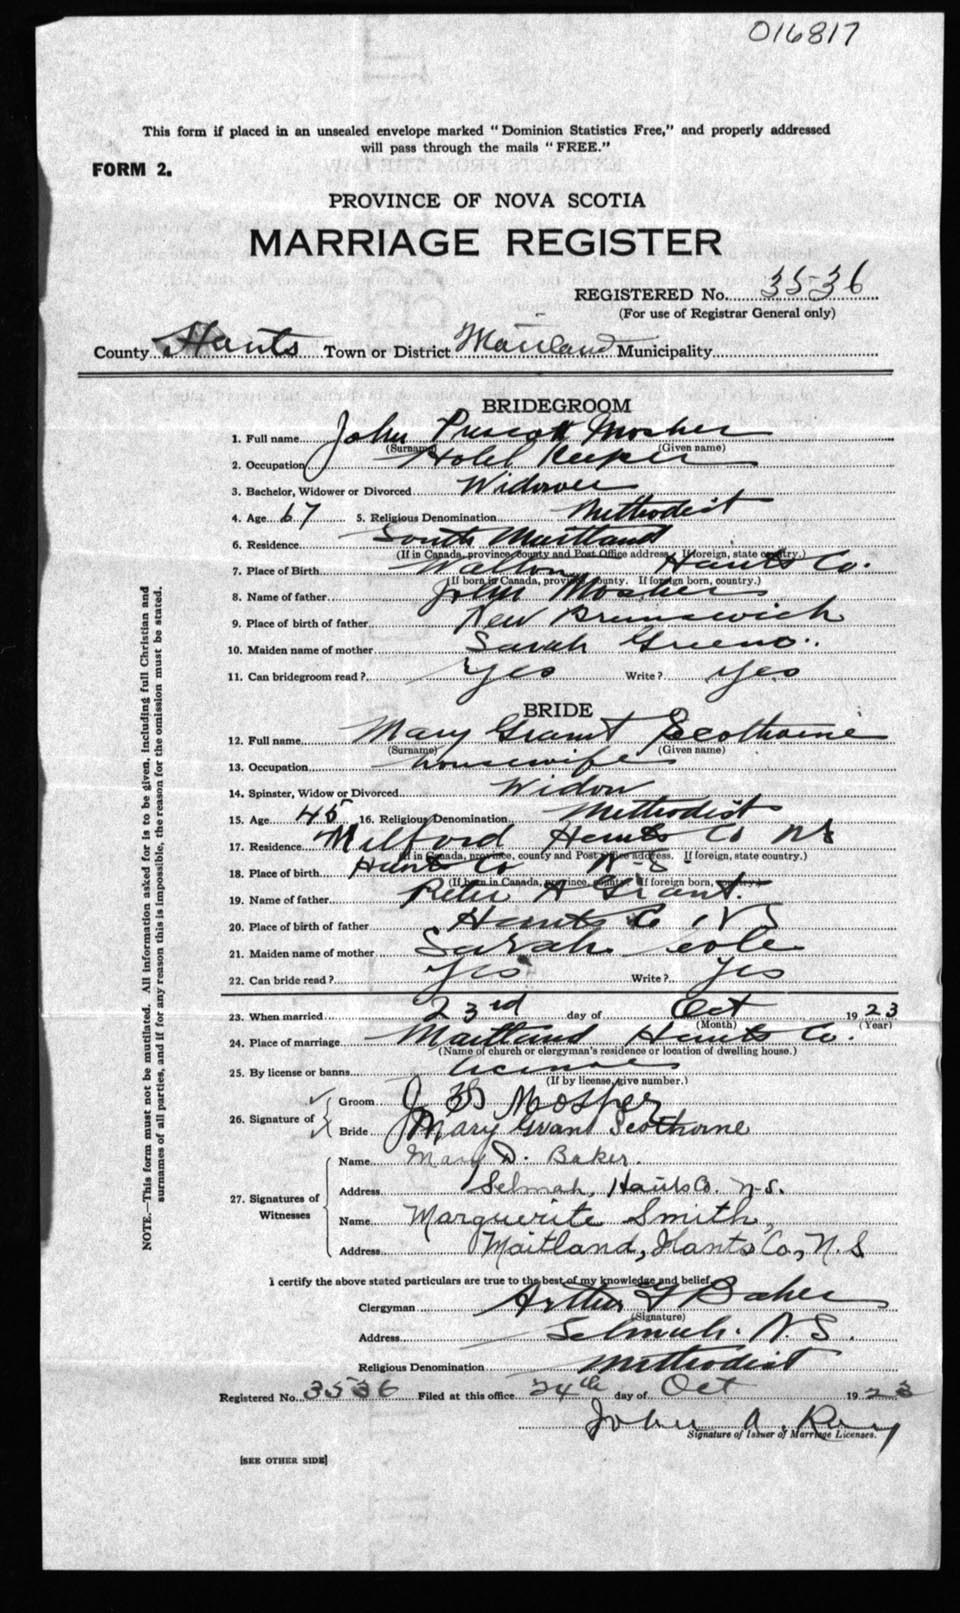 016817
This form if placed in an unsealed envelope marked "Dominion Statistics Free," and properly addressed
will pass through the mails "FREE."
FORM 2.
PROVINCE OF NOVA SCOTIA
MARRIAGE REGISTER
REGISTERED No. 3536
(For use of Registrar General only)
County Hants Town or District Maitland Municipality
BRIDEGROOM
1. Full name John Prescott Mosher
(Surname) (Given name)
2. Occupation Hotel Keeper
3. Bachelor, Widower or Divorced Widower
4. Age 67 5. Religious Denomination Methodist
6. Residence South Maitland
(If in Canada, province, county and Post Office address. If foreign, state country.)
7. Place of Birth Walton Hants Co.
(If born in Canada, province, county. If foreign born, country.)
8. Name of father John Mosher
9. Place of birth of father New Brunswick
10. Maiden name of mother Sarah Greeno
11. Can bridegroom read? Yes Write? Yes
BRIDE
12. Full name Mary Grant Scothorne
(Surname) (Given name)
13. Occupation housewife
14. Spinster, Widow or Divorced Widow
15. Age 45 16. Religious Denomination Methodist
17. Residence Milford Hants Co NS
(If in Canada, province, county and Post Office address. If foreign, state country.)
18. Place of birth Hants Co N-S
(If born in Canada, province, county. If foreign born, country.)
19. Name of father Peter A Grant.
20. Place of birth of father Hants Co, NS
21. Maiden name of mother Sarah Cole
22. Can bride read? Yes Write? Yes
23. When married 23rd day of Oct 1923
(Month) (Year)
24. Place of marriage Maitland Hants Co.
(Name of church or clergyman's residence or location of dwelling house.)
25. By license or banns license
(If by license, give number.)
26. Signature of
Groom J P Mosher
Bride Mary Grant Scothorne
27. Signatures of Witnesses
Name Mary D. Baker.
Address Selmah, Hants Co. N-S.
Name Marguerite Smith,
Address Maitland, Hants Co, N.S
I certify the above stated particulars are true to the best of my knowledge and belief.
Clergyman Arthur F Baker
(Signature)
Address Selmah. N.S.
Religious Denomination Methodist
Registered No. 3536 Filed at this office 24th day of Oct 1923
John A. Roy
Signature of Issuer of Marriage Licenses.
[SEE OTHER SIDE]
NOTE.—This form must not be mutilated. All information asked for is to be given, including full Christian and
surnames of all parties, and if for any reason this is impossible, the reason for the omission must be stated.